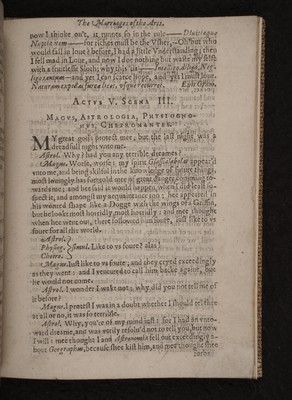 The Marriages of the Arts.
now I thinke on't, it runnes so in the rule
for riches must be the Usher, Oh but who
would fall in love? before, I had a little Understanding; then
I fell mad in Love, and now I doe nothing but waste my selfe
with a
and yet I can
Naturam expellas furca licet, usque recurret.
ACTUS V. SCENA III.
MAGUS, ASTROLOGIA, PHYSIOGNO-
MUS, CHEIROMANTES.
MY great gods protect mee, but the last night was a
dreadfull night unto me.
Astrol. Why? had you any terrible dreames?
Magus. Worse, worse: my spirit appear'd
unto me, and being skilful in the knowledge of future things,
most lovingly has foretold me of great
wards me; and hee said it would happen, when I did least su-
spect it, and amongst my acquaintance too: hee appeared in
his wonted shape like a Dogge with the wings of a Griffin,
but he lookt most horridly, most horridly: and mee thought
when hee went out, there followed him just like to ye
foure for all the world.
Astrol.
Physiog. Like to us foure? alas!
Cheiro.
Magus. Just like to us foure; and they cryed exceedingly
as they went: and I ventured to call him backe againe, but
he would not come.
Astrol. I wonder I wak't not; why did you not tell me of
it before?
Magus. I protest I was in a doubt whether I should tell thee
at all or no, it was so terrible.
Astrol. Why, you're of my mind just: for I had an unto-
ward dreame, and was verily resolv'd not to tell you, but now
I will: mee thought I saw Astronomia fell out exceedingly a-
bout Geographus, because shee kist him, and mee thought shee